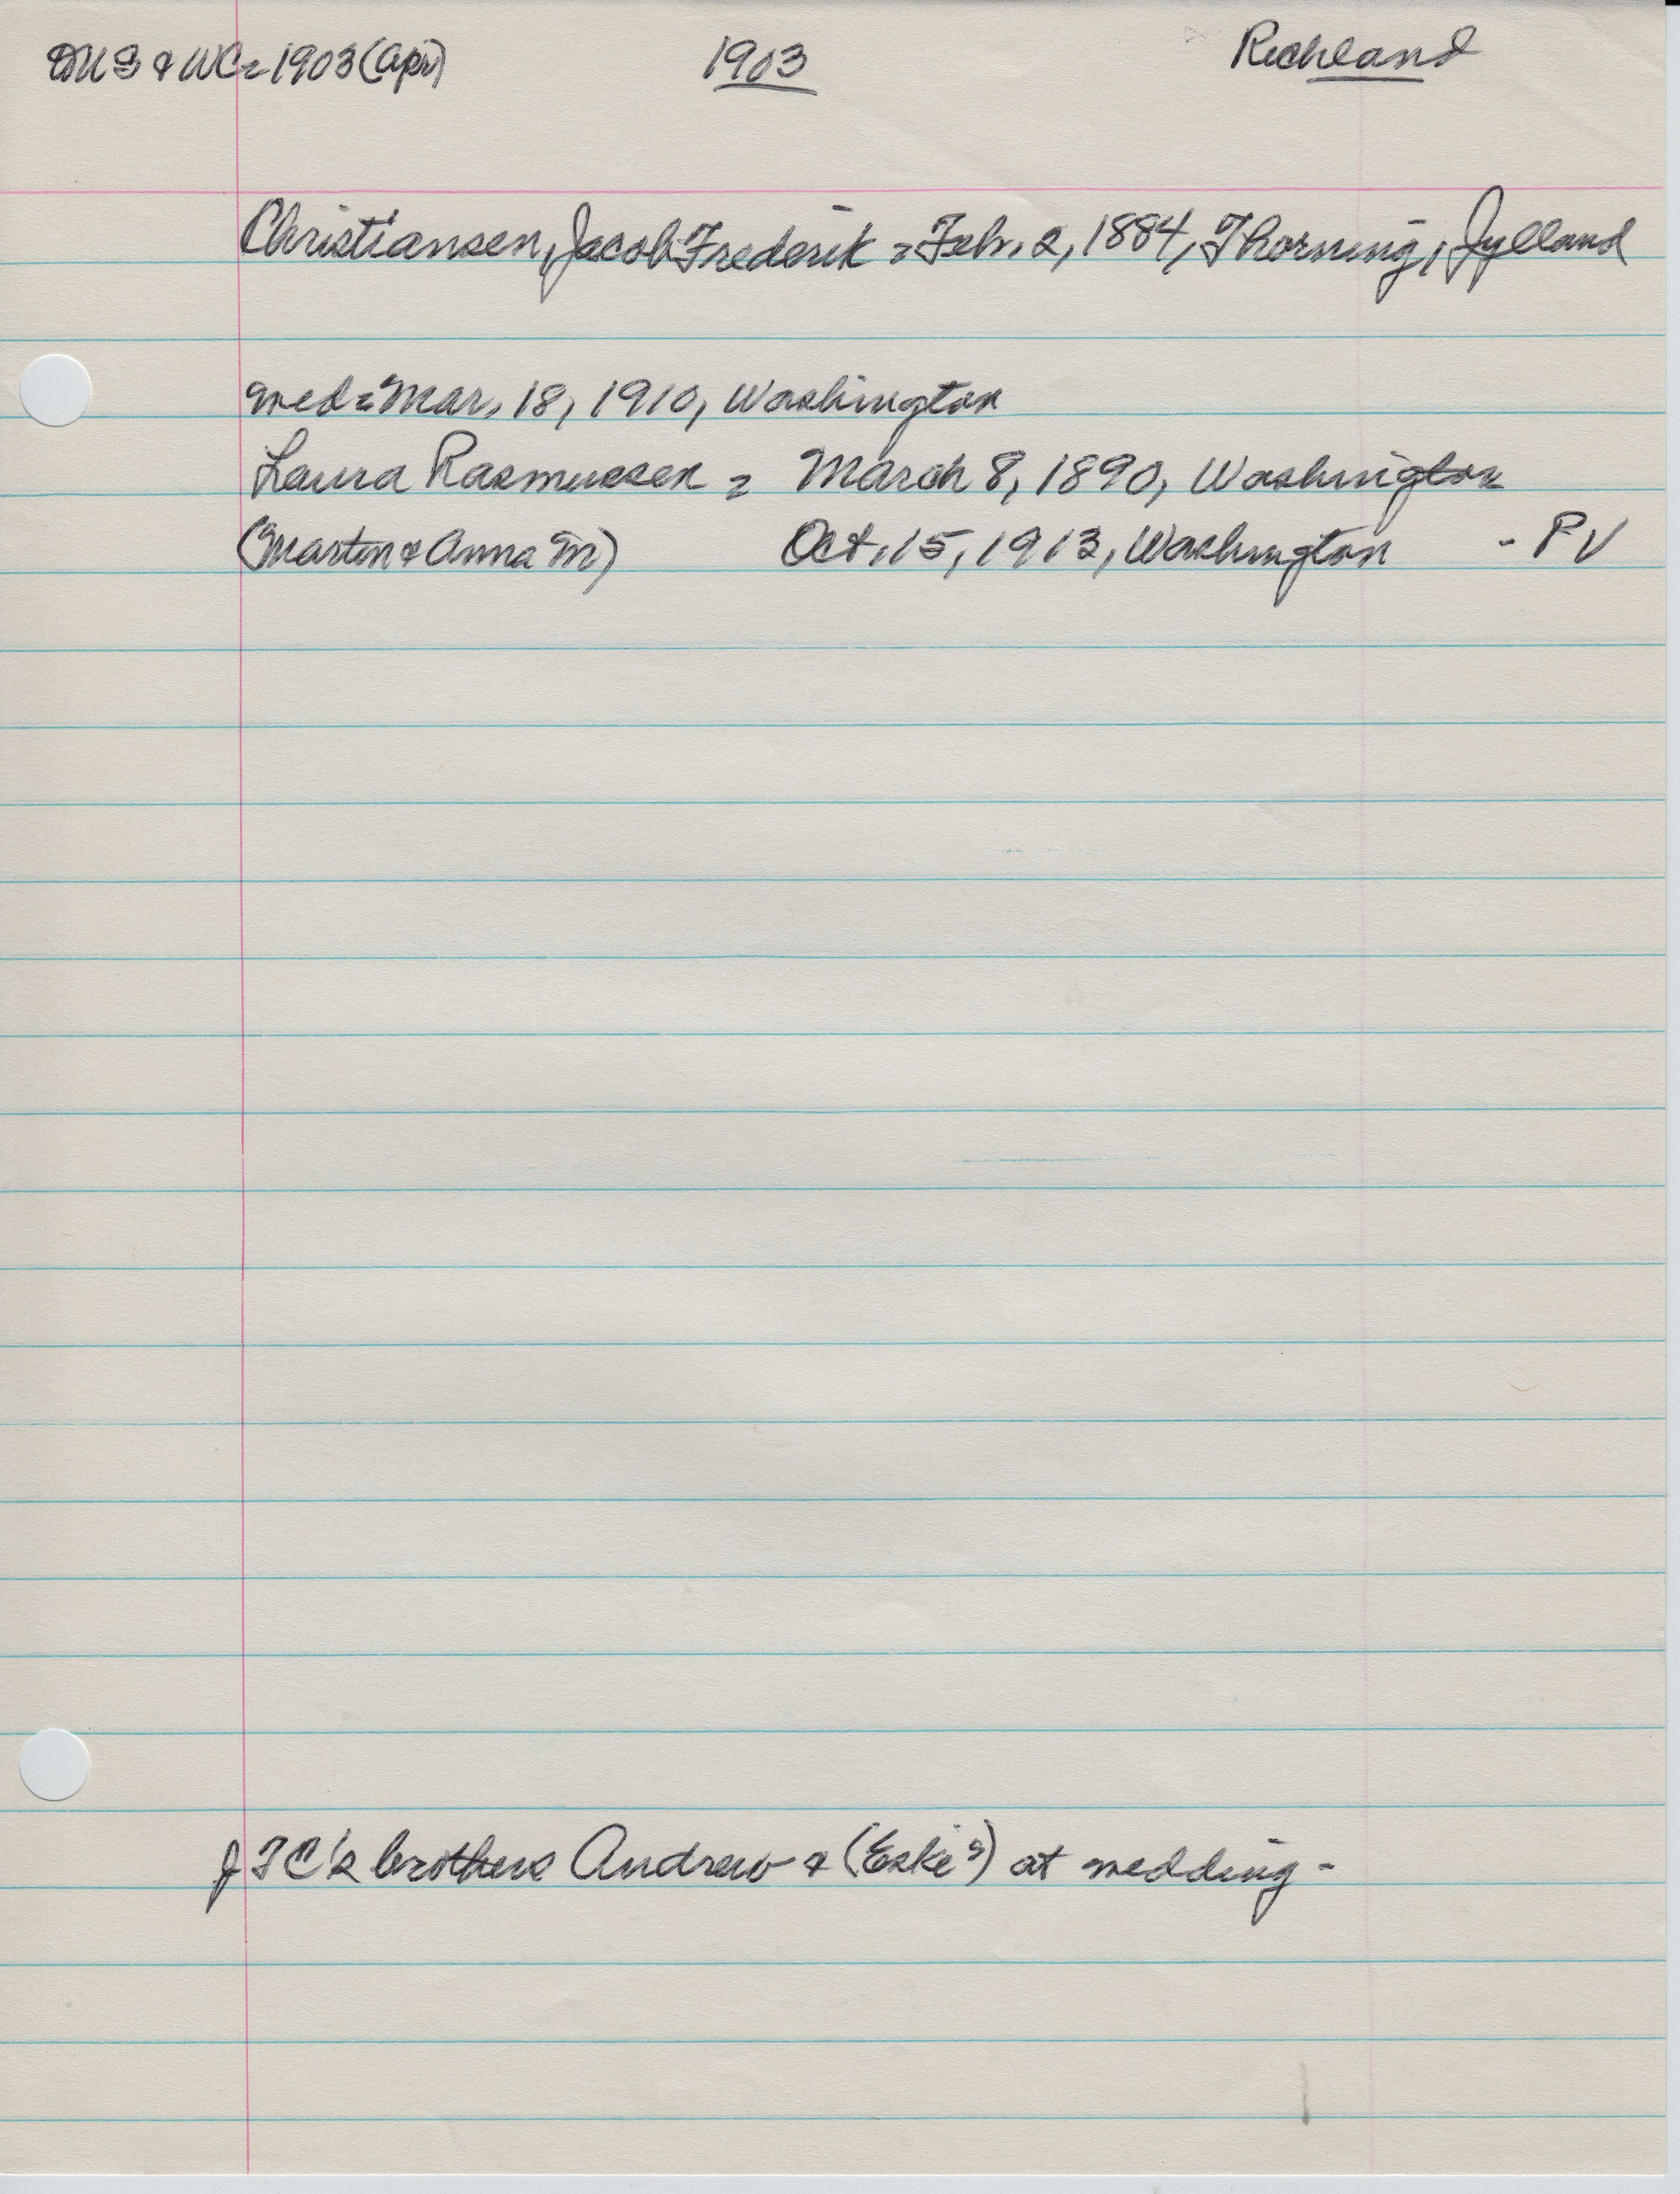 DUS & WC = 1903 (Apr)    1903    Richland
Christiansen, Jacob Frederik = Feb. 2, 1884, Thorning, Jylland
wed = Mar. 18, 1910, Washington
Laura Rasmussen = March 8, 1890, Washington
(Marten & Anna M)    Oct. 15, 1913, Washington    - PV
JFC's brothers Andrew & (Eski?) at wedding -